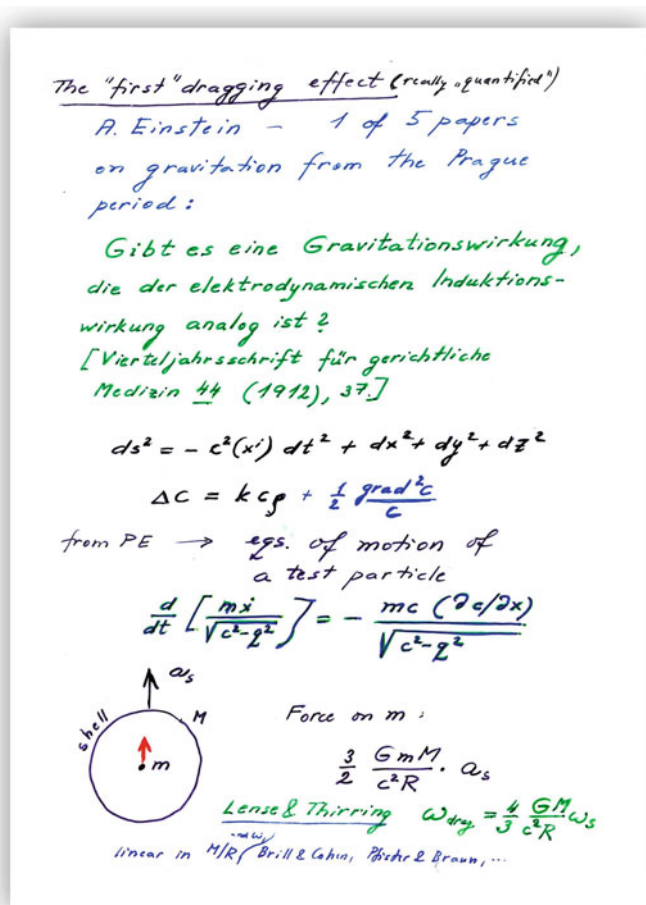 The "first" dragging effect (really „quantified")
A. Einstein – 1 of 5 papers
on gravitation from the Prague
period :
Gibt es eine Gravitationswirkung,
die der elektrodynamischen Induktions-
wirkung analog ist ?
[Vierteljahrsschrift für gerichtliche
Medizin 44 (1912), 37.]
ds² = − c²(xⁱ) dt² + dx² + dy² + dz²
Δc = kcρ + 1/2 grad²c/c
from PE → eqs. of motion of
a test particle
d/dt [mẋ/√(c²−q²)] = − mc (∂c/∂x)/√(c²−q²)
a_s
shell M
m
Force on m :
3/2 GmM/c²R · a_s
Lense & Thirring ω_drag = 4/3 GM/c²R ω_s
linear in M/R Brill & Cohen, Pfister & Braun, ...